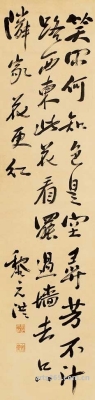 笑尔何知色是空尋芳不計
路西東此花看罷過墻去
隣家花更紅
黎元洪